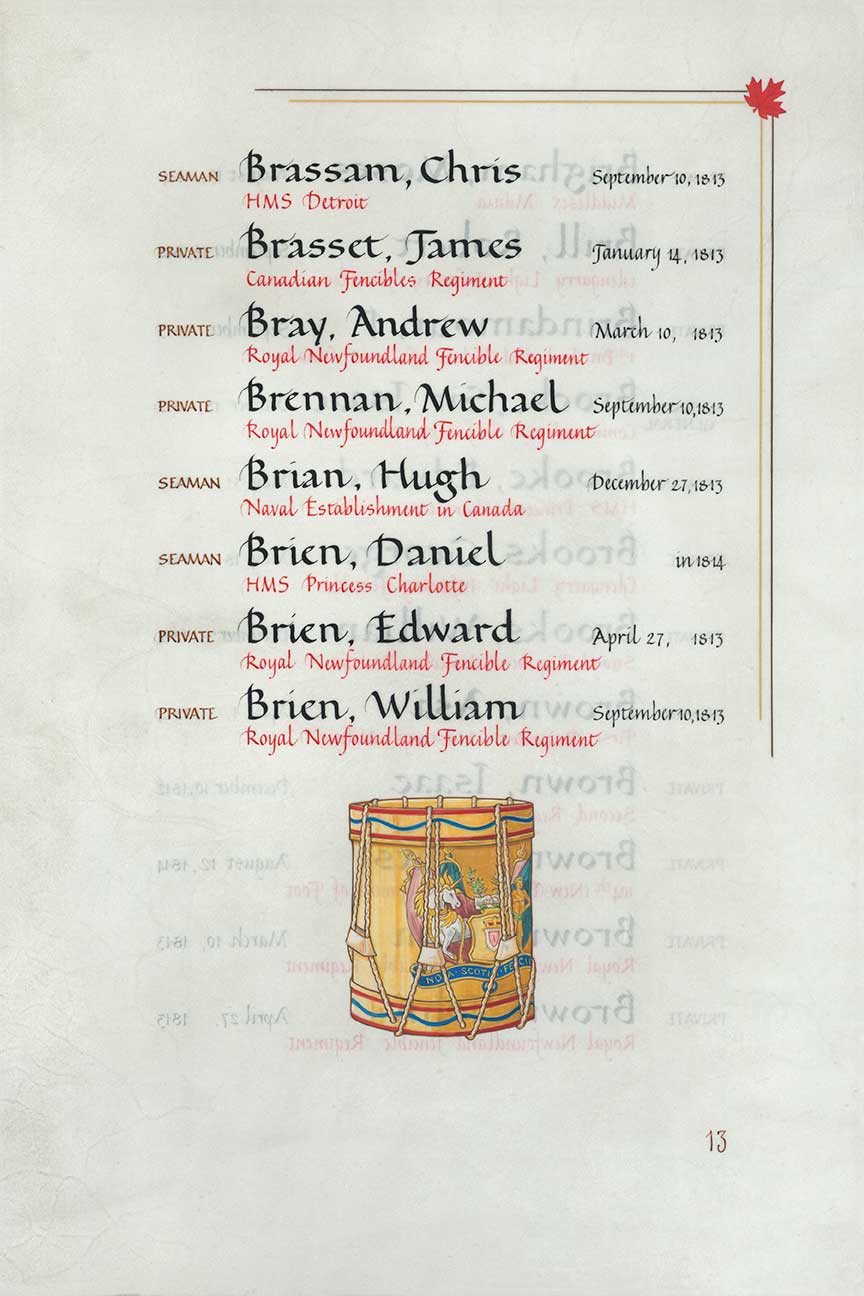 SEAMAN Brassam, Chris September 10, 1813
HMS Detroit
PRIVATE Brasset, James January 14, 1813
Canadian Fencibles Regiment
PRIVATE Bray, Andrew March 10, 1813
Royal Newfoundland Fencible Regiment
PRIVATE Brennan, Michael September 10, 1813
Royal Newfoundland Fencible Regiment
SEAMAN Brian, Hugh December 27, 1813
Naval Establishment in Canada
SEAMAN Brien, Daniel in 1814
HMS Princess Charlotte
PRIVATE Brien, Edward April 27, 1813
Royal Newfoundland Fencible Regiment
PRIVATE Brien, William September 10, 1813
Royal Newfoundland Fencible Regiment
NOVA SCOTIA FENCI
13